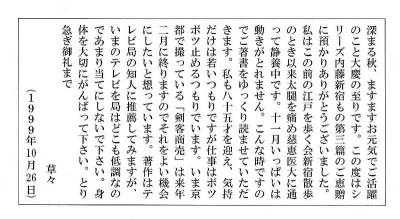 深まる秋、ますますお元気でご活躍
のこと大慶の至りです。この度はシ
リーズ内藤新宿もの第三篇のご恵贈
に預かりありがとうございました。
私はこの前の江戸を歩く会新宿散歩
のとき以来太腿を痛め慈恵医大に通
って静養中です。十一月いっぱいは
動きがとれません。こんな時ですの
でご著書をゆっくり読ませていただ
きます。私も八十五才を迎え、気持
だけは若いつもりですが仕事はボツ
ボツ止めるつもりでいます。いま京
都で撮っている「剣客商売」は来年
二月に終りますのでそれをよい機会
にしたいと想っています。著作はテ
レビ局の知人に推薦してみますが、
いまのテレビを局はどこも低調なの
であまり当てにしないで下さい。身
体を大切にがんばって下さい。とり
急ぎ御礼まで
草々
(1999年10月26日)